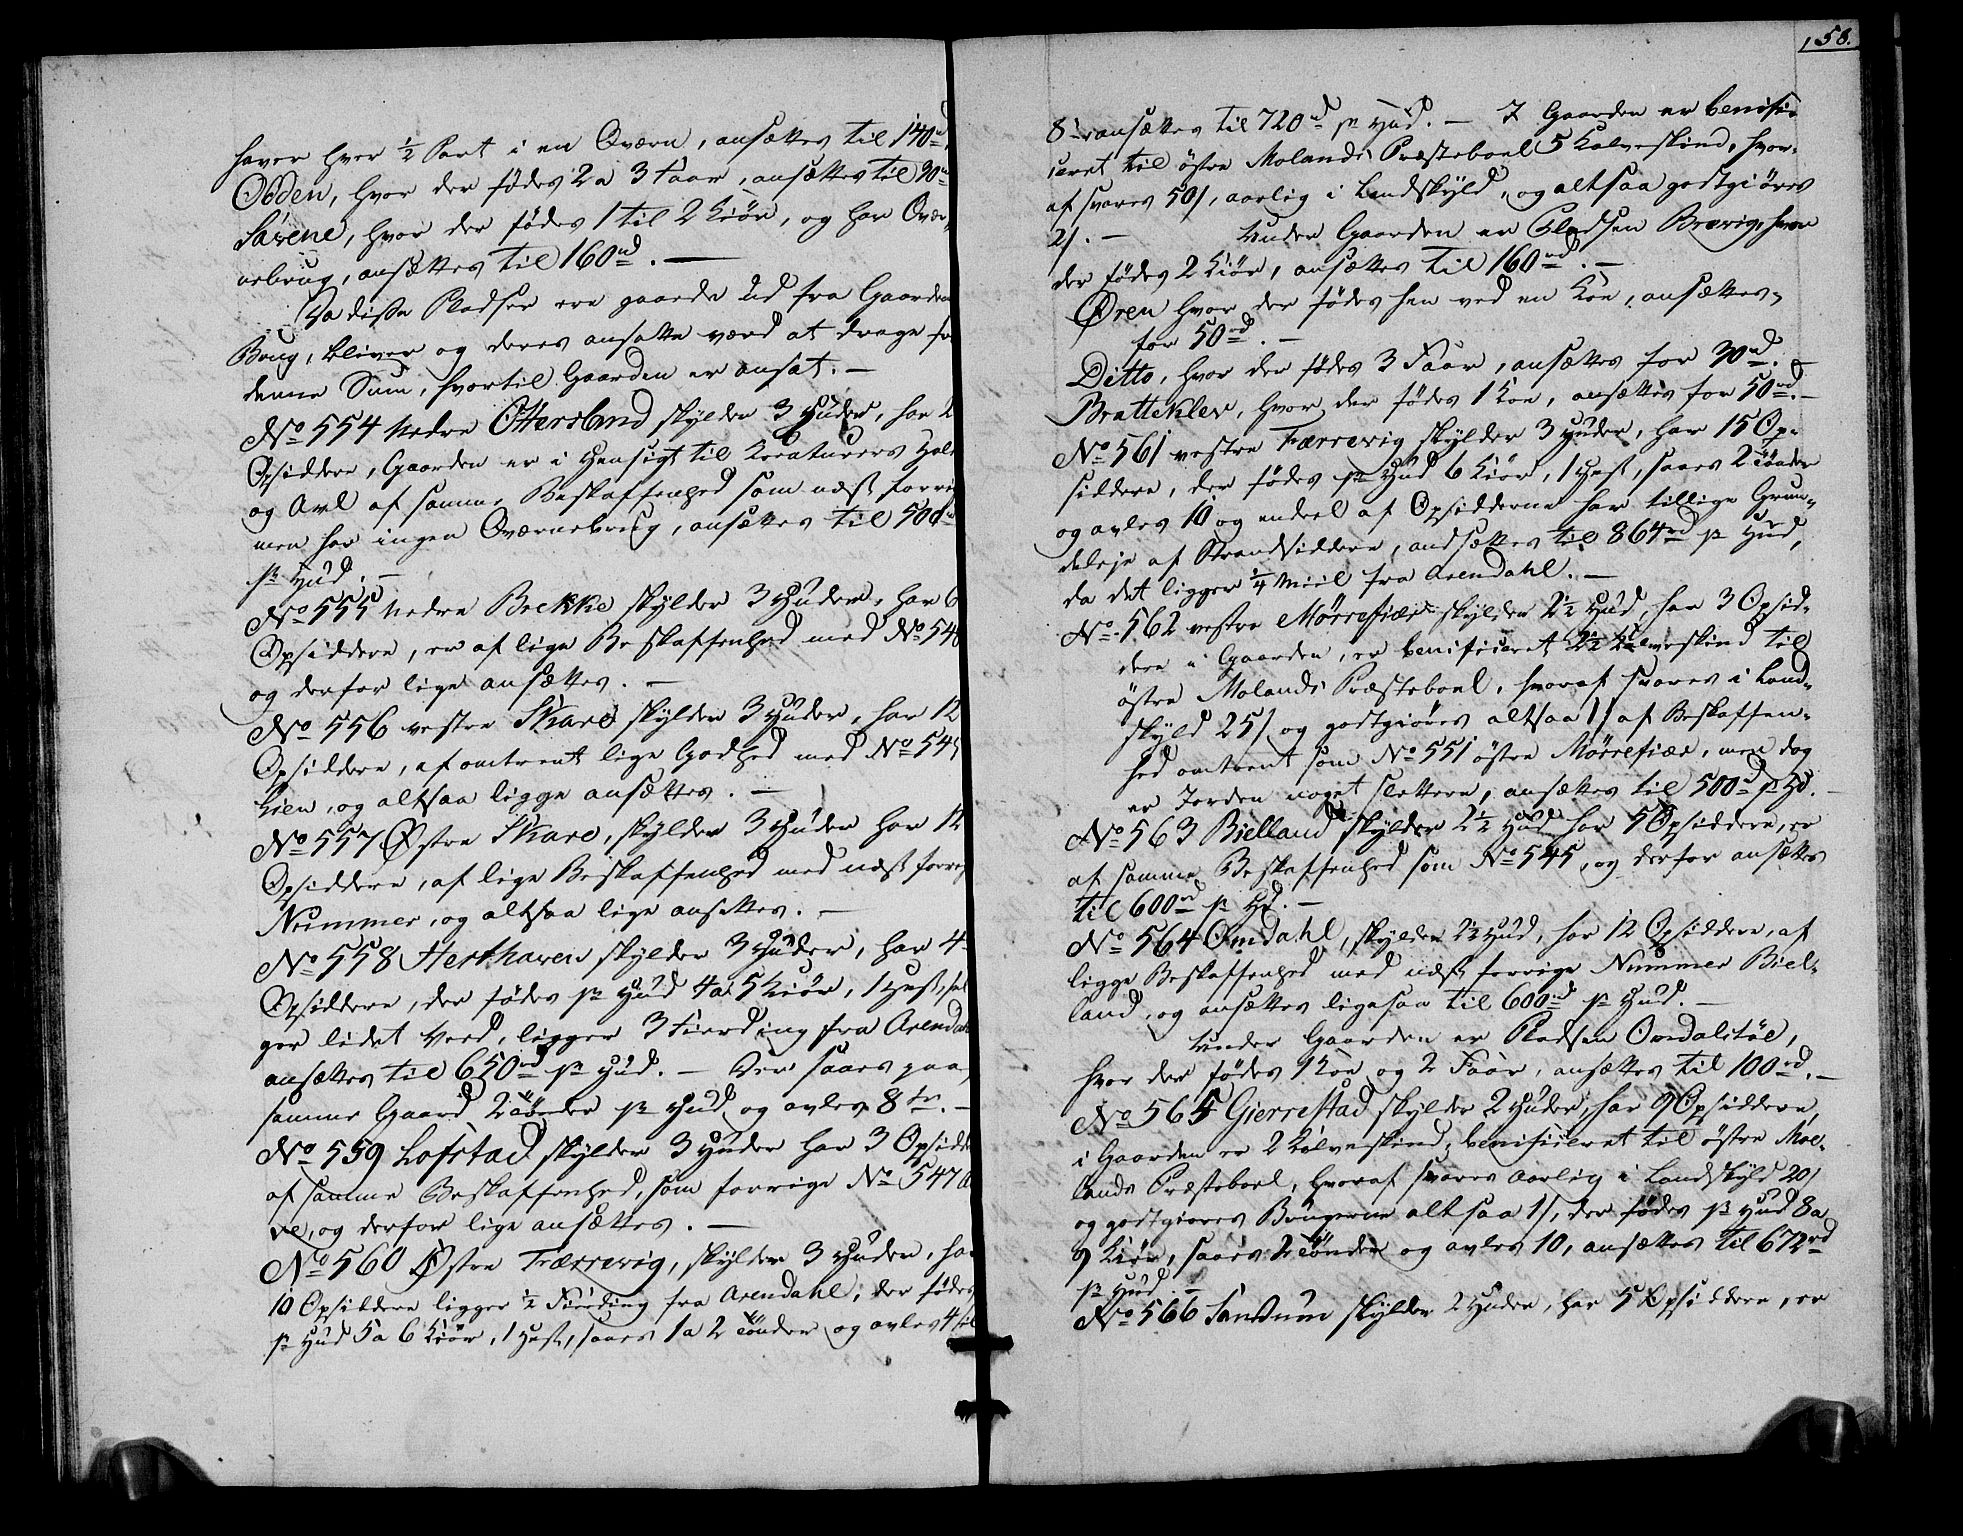 haver hver ½ Part i en Qværn, ansættes til 140 rd
Odden, hvor der fødes 2 a 3 Faar, ansættes til 30 rd
Savene, hvor der fødes 1 til 2 Kiør, og har Qvær-
nebrug, ansættes til 160 rd. —
Da disse Pladser ere gaaede ud fra Gaardens
Brug, bliver og deres ansatte værd at drage fra
denne Sum, hvortil Gaarden er ansat. —
No 554 Nedre Ottersland skylder 3 Huder, har 2
Opsiddere, Gaarden er i Hensigt til Kreaturers Hold
og Avl af samme Beskaffenhed som næst forrige
men har ingen Qværnebrug, ansættes til 500 rd
pr Hud. —
No 555 Nedre Brekke skylder 3 Huder, har 6
Opsiddere, er af lige Beskaffenhed med No 548
og derfor lige ansættes. —
No 556 vestre Skare skylder 3 Huder, har 12
Opsiddere, af omtrent lige Godhed med No 545
Lien, og altsaa ligge ansættes. —
No 557 Østre Skare, skylder 3 Huder har 12
Opsiddere, af lige Beskaffenhed med næst forrige
Nummer, og altsaa lige ansættes. —
No 558 Herthaven skylder 3 Huder, har 4
Opsiddere, der fødes pr Hud 4 a 5 Kiør, 1 Hest, sæl-
ger lidet Veed, ligger 3 Fierding fra Arendahl
ansættes til 650 rd pr Hud. — Der saaes paa
samme Gaard 2 Tønder pr Hud og avles 8 Tr. —
No 559 Lofstad skylder 3 Huder har 3 Opsiddere
af samme Beskaffenhed, som forrige No 547
og derfor lige ansættes. —
No 560 Østre Færrevig, skylder 3 Huder, har
10 Opsiddere ligger ½ Fierding fra Arendahl, der fødes
pr Hud 5 a 6 Kiør, 1 Hest, saaes 1 a 2 Tønder og avles 4 til
158.
8 ansættes til 720 rd pr Hud. — I Gaarden er benifi-
ceret til østre Molands Præsteboel 5 Kalveskind, hvor-
af svares 50 s, aarlig i Landskyld, og altsaa godtgiøres
2 s. — Under Gaarden er Pladsen Brevig, hvor
der fødes 2 Kiør, ansættes til 160 rd. —
Øren hvor der fødes hen ved en Koe, ansættes
for 50 rd. —
Ditto, hvor der fødes 3 Faar, ansættes for 30 rd. —
Bratteklev, hvor der fødes 1 Koe, ansættes for 50 rd. —
No 561 vestre Færrevig skylder 3 Huder, har 15 Op-
siddere, der fødes pr Hud 6 Kiør, 1 Hest, saaes 2 Tønder
og avles 10 og endeel af Opsidderne har tillige Grun-
deleje af Strandsiddere, andsættes til 864 rd pr Hud,
da det ligger ¼ Miil fra Arendahl. —
No 562 vestre Mørrefiær skylder 2½ Hud, har 3 Opsid-
dere i Gaarden, er benificeret 2½ Kalveskind til
østre Molands Præsteboel, hvoraf svares i Land-
skyld 25 s og godtgiøres altsaa 1 s af Beskaffen-
hed omtrent som No 551 østre Mørrefiær, men dog
er Jorden noget slettere, ansættes til 500 rd pr Hd. —
No 563 Bielland skylder 2½ Hud har 5 Opsiddere, er
af samme Beskaffenhed som No 545, og derfor ansættes
til 600 rd pr Hd. —
No 564 Omdahl, skylder 2½ Hud, har 12 Opsiddere, af
ligge Beskaffenhed med næst forrige Nummer Biel-
land, og ansættes ligesaa til 600 rd pr Hud. —
Under Gaarden er Pladsen Omdalstøe,
hvor der fødes 1 Koe og 2 Faar, ansættes til 100 rd. —
No 565 Gierrestad skylder 2 Huder, har 9 Opsiddere,
i Gaarden er 2 Kalveskind, benificieret til østre Mo-
lands Præsteboel, hvoraf svares aarlig i Landskyld 20 s
og godtgiøres Brugerne altsaa 1 s, der fødes pr Hud 8 a
9 Kiør, saaes 2 Tønder og avles 10, ansættes til 672 rd
pr Hud. —
No 566 Sandum skylder 2 Huder, har 5 Opsiddere, er